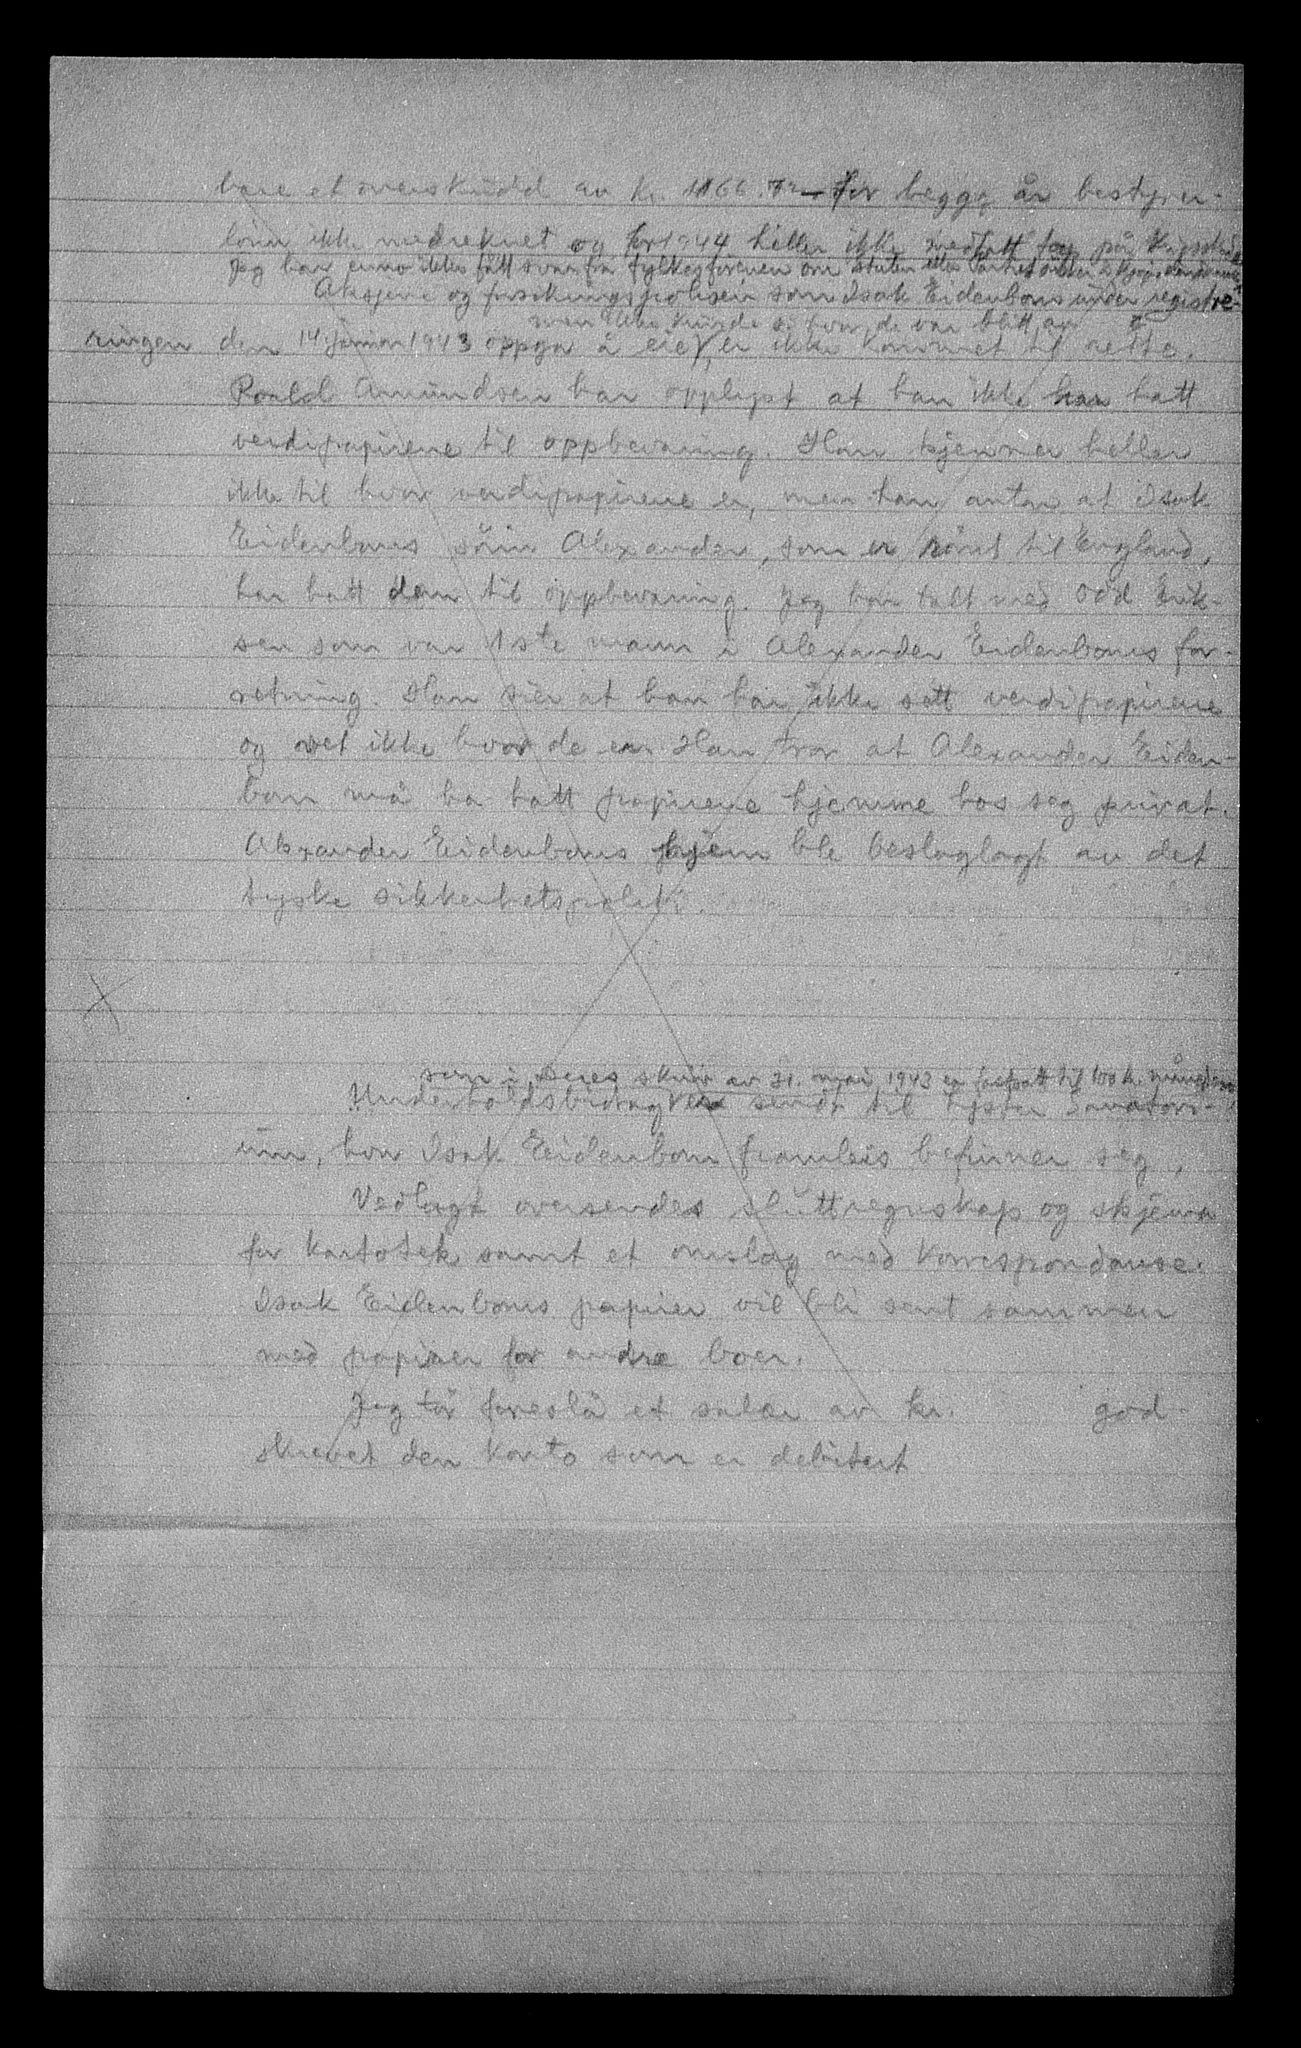 bare et overskudd av kr. 1166.72 – for begge år bestyrer-
lønn ikke medreknet og for 1944 heller ikke medtatt tap på
Jeg har enno ikke fått svar fra fylkesføreren om staten eller Partiet ønsker å kjøpe
Aksjene og forsikringspolisen som Isak Eidenbom under registre-
men ikke kunde si hvor de var blitt av
ringen den 14 januar 1943 oppga å eie, er ikke kommet til rette.
Roald Amundsen har opplyst at han ikke har hatt
verdipapirene til oppbevaring. Han kjenner heller
ikke til hvor verdipapirene er, men han antar at Isak
Eidenboms sønn Alexander, som er rømt til England,
har hatt dem til oppbevaring. Jeg har talt med Odd Erik-
sen som var 1ste mann i Alexander Eidenboms for-
retning. Han sier at han har ikke sett verdipapirene
og vet ikke hvor de er. Han tror at Alexander Eiden-
bom må ha hatt papirene hjemme hos seg privat.
Alexander Eidenboms hjem ble beslaglagt av det
tyske sikkerhetspoliti.
som i Deres skriv av 31. mai 1943 er fastsatt til 100 kr. måneden
Underholdsbidraget er sendt til Lyster Sanatori-
um, hvor Isak Eidenbom framleis befinner seg,
Vedlagt oversendes sluttregnskap og skjema
for kartotek samt et omslag med korrespondanse.
Isak Eidenboms papirer vil bli sent sammen
med papirer for andre boer.
Jeg tør foreslå et salær av kr. god-
skrevet den konto som er debitert